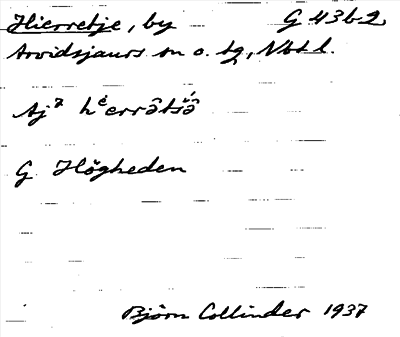 Hierretje, by G 43b2
Arvidsjaurs sn o. tg, Nbt l.
Aj⁷
G Högheden
Björn Collinder 1937